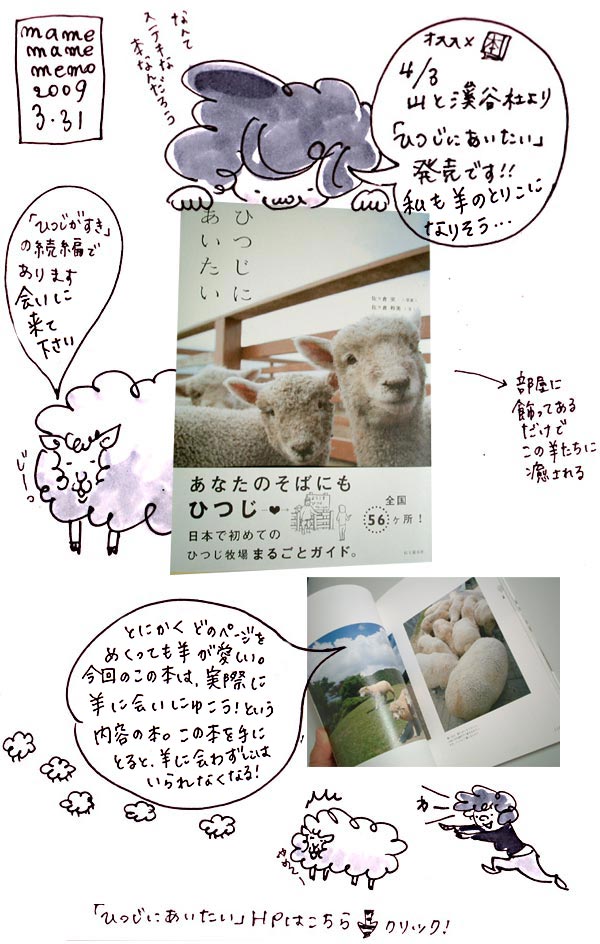 mame
mame
memo
2009
3.31
なんて
ステキな
本なんだろう
オススメ 本
4/3
山と溪谷社より
「ひつじにあいたい」
発売です!!
私も羊のとりこに
なりそう…
「ひつじがすき」
の続編で
あります
会いに
来て
下さい
じーっ
ひつじに
あいたい
あなたのそばにも
ひつじ
全国
56ヶ所!
日本で初めての
ひつじ牧場まるごとガイド。
山と溪谷社
部屋に
飾ってある
だけで
この羊たちに
癒される
とにかくどのページを
めくっても羊が愛しい。
今回のこの本は、実際に
羊に会いにゆこう!という
内容の本。この本を手に
とると、羊に会わずには
いられなくなる!
わー
「ひつじにあいたい」HPはこちら クリック!